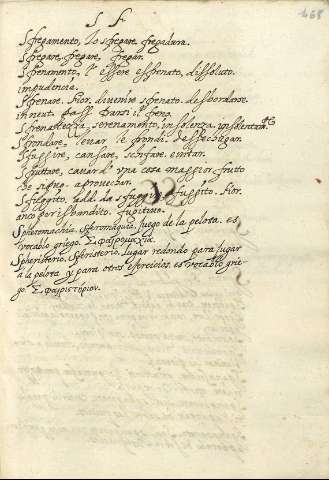 S F
468
Sfregamento, Lo sfregare. fregadura.
Sfregare, fregare, fregar.
Sfrenamento, L'essere esfrenato, dissoluto.
impudencia.
Sfrenare. Fior. divenire sfrenato. desbordarse.
in neut. pass. trarsi il freno.
Sfrenatezza, sfrenamento, insolenza, insolentarse
Sfrondare, levar le frondi. deshojar.
Sfuggire, cansare, schifare. evitar.
Sfruttare, cavar d'una cosa maggior frutto
che si può. aprovechar.
Sfuggito, add. da sfuggire, fuggito. Fior.
anco per isbandito. fugitivo.
Spheromachia. Sferomaquia. juego de la pelota. es
vocablo griego. Σφαιρομαχία.
Spheristerio. Sferisterio. Lugar redondo para jugar
a la pelota y para otros exercicios. es vocablo grie-
go. Σφαιριστήριον.